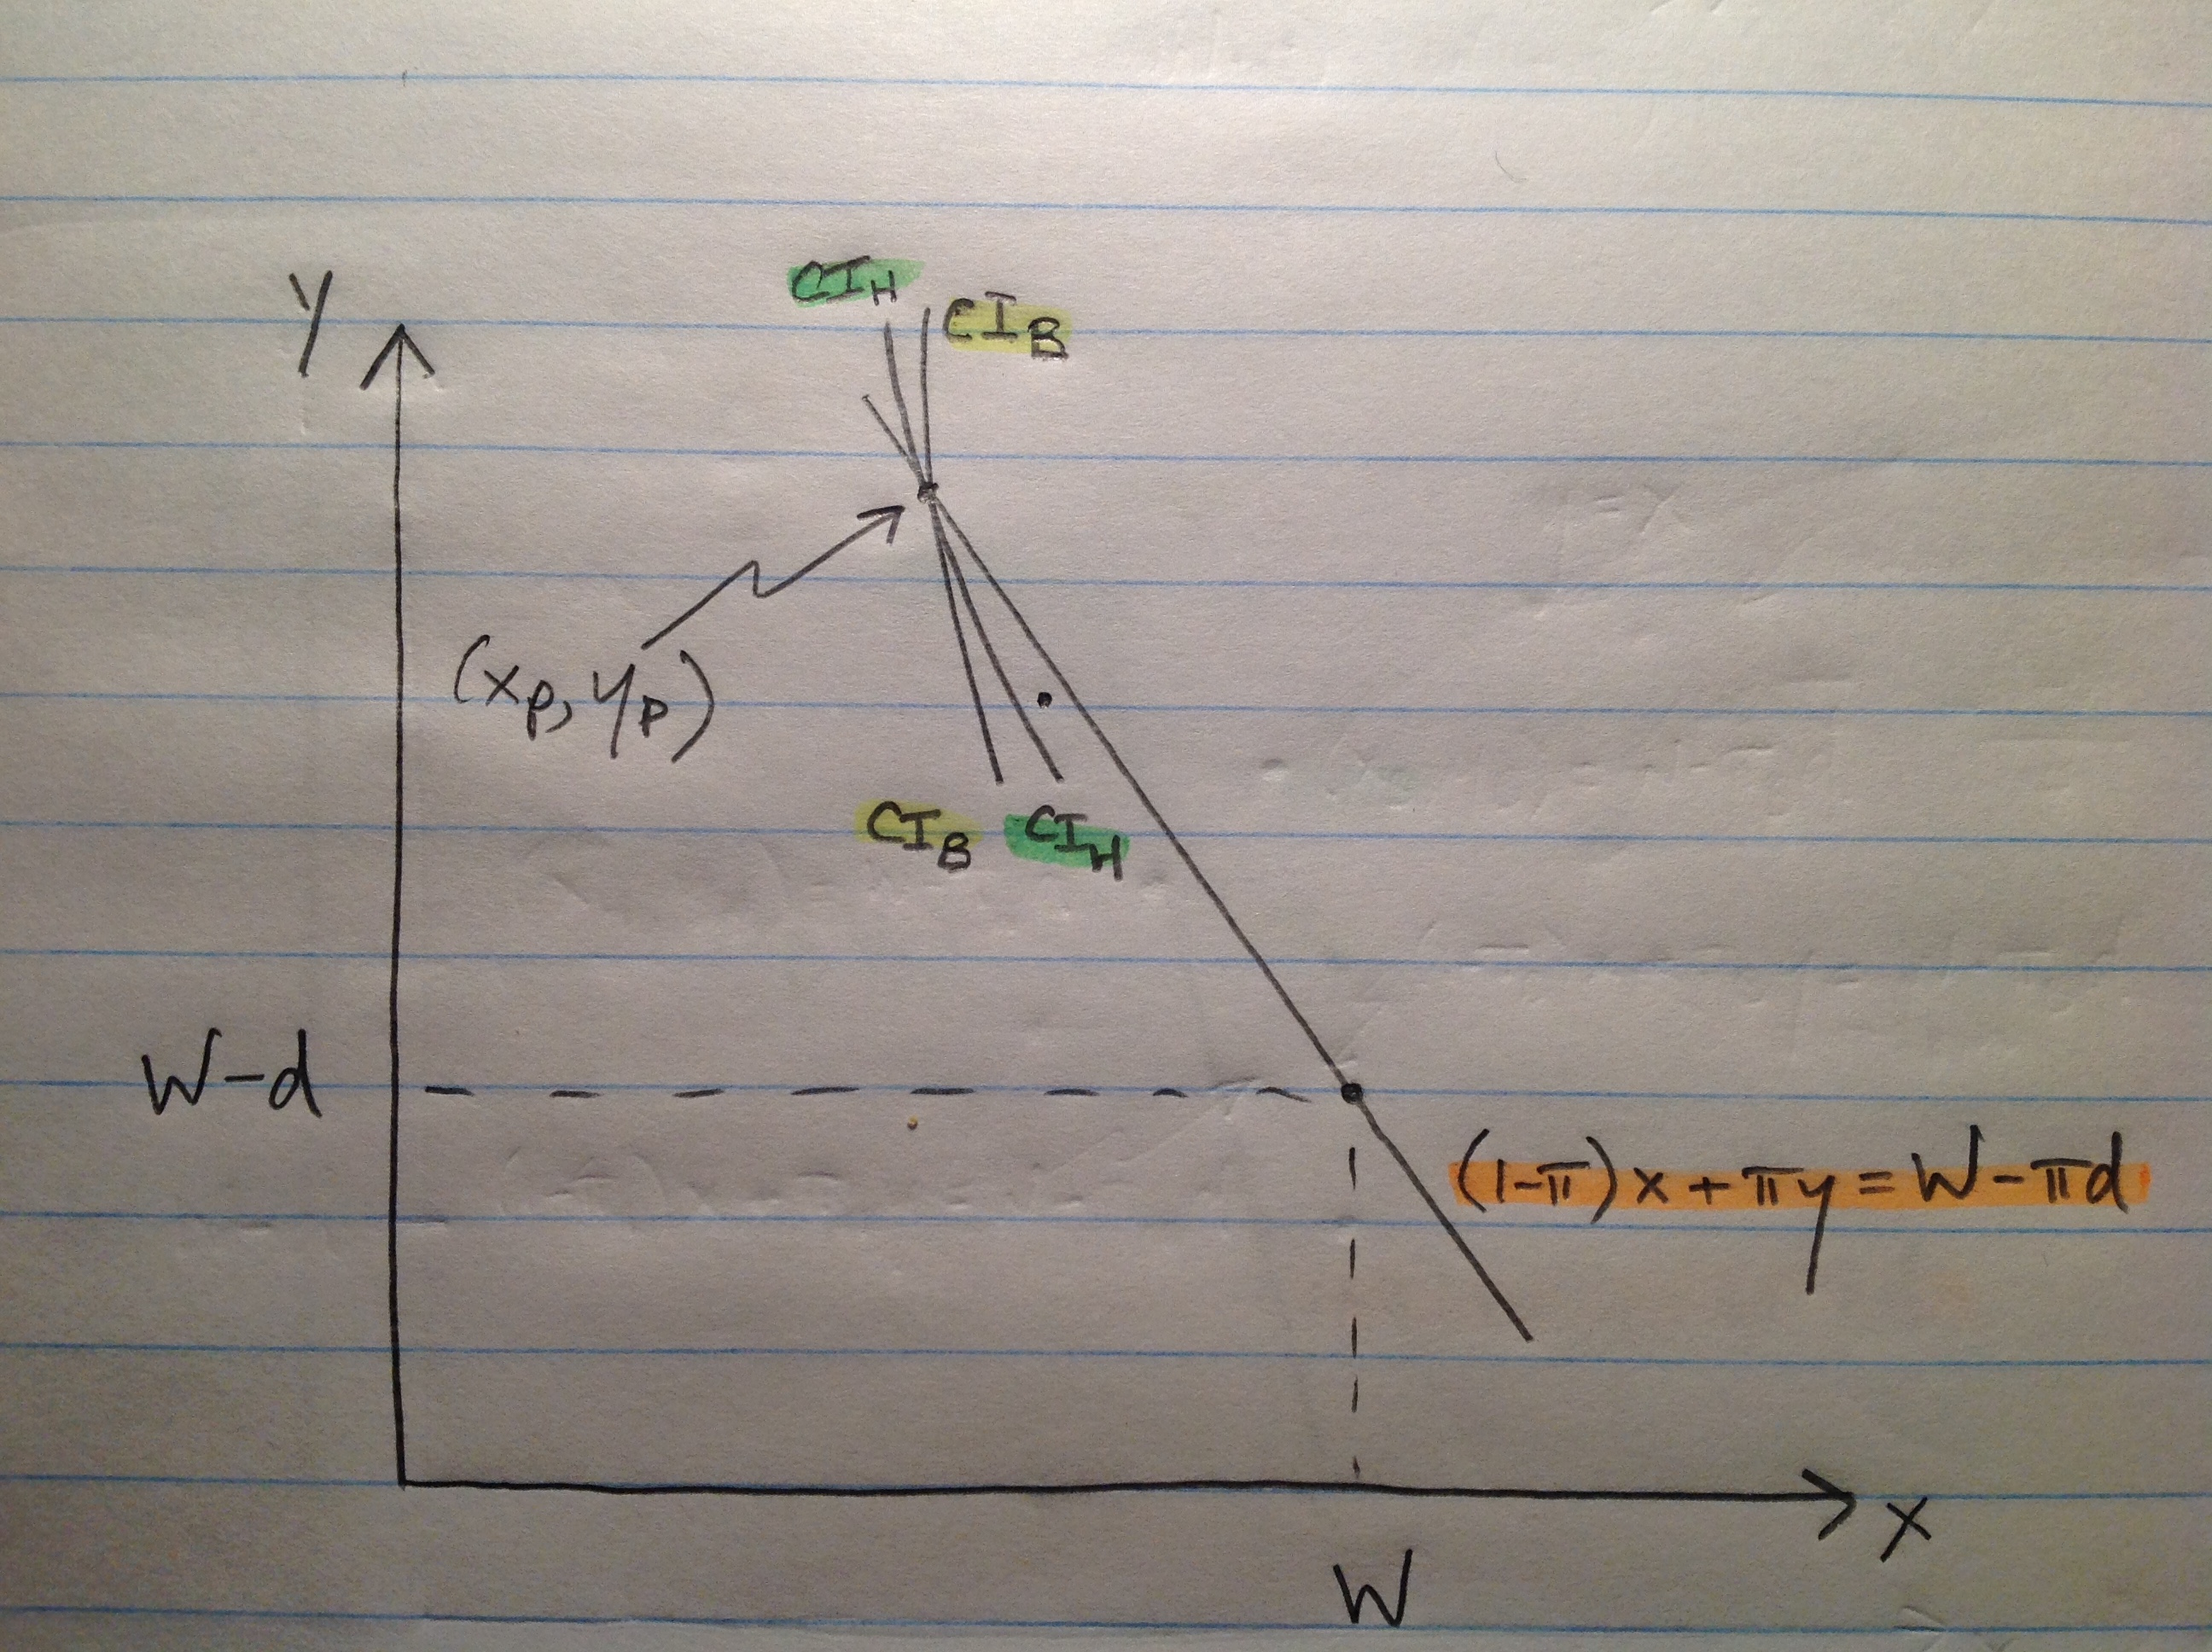 CI_H
y
CI_B
(x_p, y_p)
CI_B
CI_H
W-d
(1-π)x + πy = W - πd
x
W